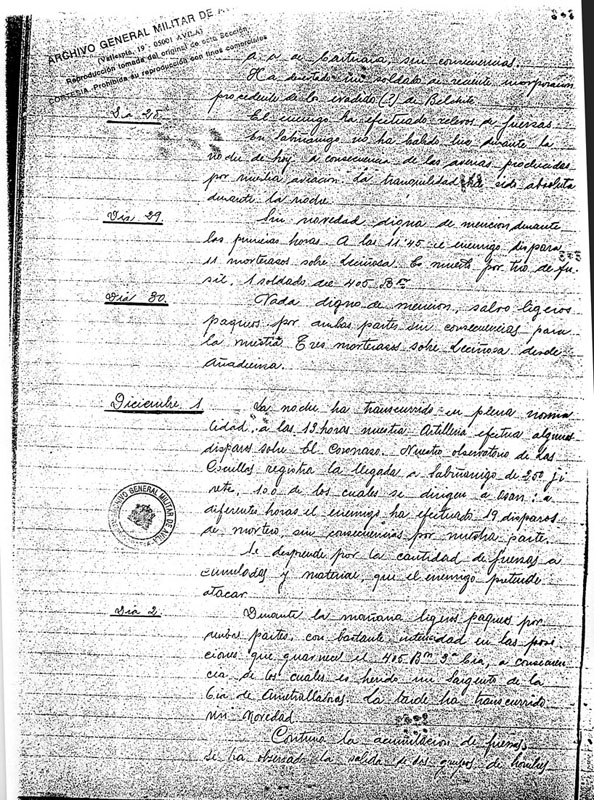 ARCHIVO GENERAL MILITAR DE
(Vallespín, 19 - 05001 AVILA)
Reproducción tomada del original de esta Sección
CORTESÍA - Prohibida su reproducción con fines comerciales
a. a. de Cartuara, sin consecuencias.
Ha desertado un soldado de reciente incorporación
procedente de los evadidos (?) de Belchite
Día 28. El enemigo ha efectuado relevos de fuerzas.
En Sabiñanigo no ha habido luz durante la
noche de hoy a consecuencia de las averias producidas
por nuestra aviación. La tranquilidad ha sido absoluta
durante la noche.
Día 29. Sin novedad digna de mencion durante
las primeras horas. A las 11'45 el enemigo dispara
11 morterazos sobre Leciñosa. Es muerto por tiro de fu-
sil, 1 soldado del 405 Bon
Día 30. Nada digno de mencion, salvo ligeros
paqueos por ambas partes sin consecuencias para
la nuestra. Tres morterazos sobre Leciñosa desde
Diciembre 1 La noche ha transcurrido en plena norma
lidad, a las 13 horas nuestra Artilleria efectua algunos
disparos sobre El Coronazo. Nuestro observatorio de Las
registra la llegada a Sabiñanigo de 250 ji
netes, 100 de los cuales se dirigen a Osan; a
diferentes horas el enemigo ha efectuado 19 disparos
de mortero, sin consecuencias por nuestra parte.
Se desprende por la cantidad de fuerzas a
cumuladas y material, que el enemigo pretende
atacar
ARCHIVO GENERAL MILITAR DE AVILA
Día 2. Durante la mañana ligeros paqueos por
ambas partes, con bastante intensidad en las posi
ciones que guarnece el 405 Bon 3ª Cia, a consecuen
cia de los cuales es herido un Sargento de la
Cia de Ametralladoras. La tarde ha transcurrido
sin novedad
Continua la acumulacion de fuerzas,
se ha observado la salida de dos grupos de hombres